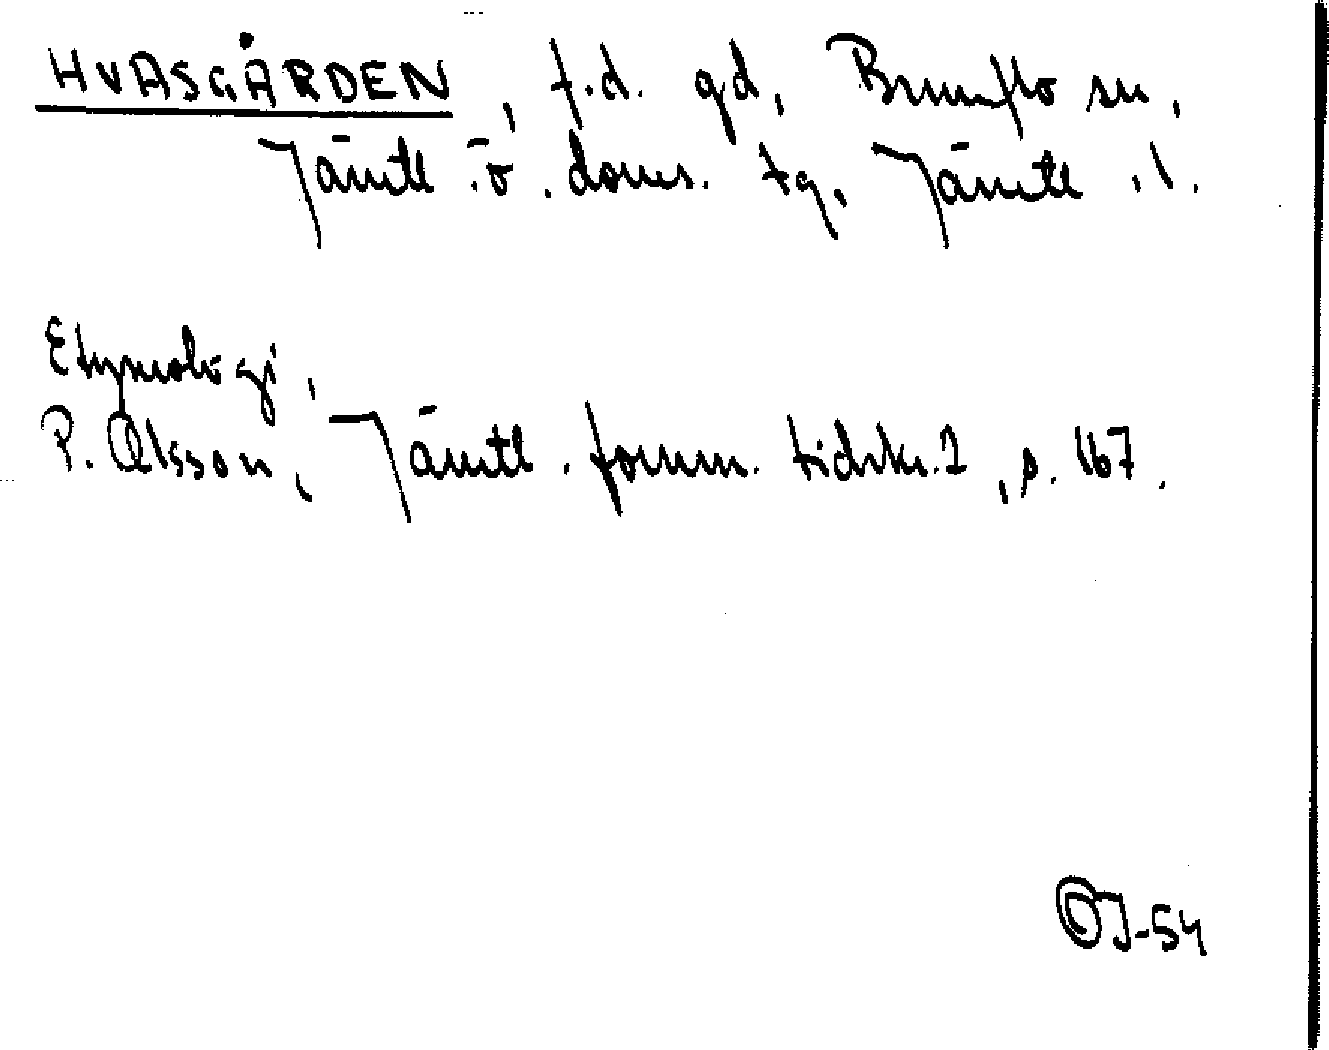 HVASGÅRDEN, f.d. gd, Brunflo sn,
Jämtl. ö. doms. tg, Jämtl. l.
Etymologi,
P. Olsson, Jämtl. fornm. tidskr. 2, s. 167.
OJ-54